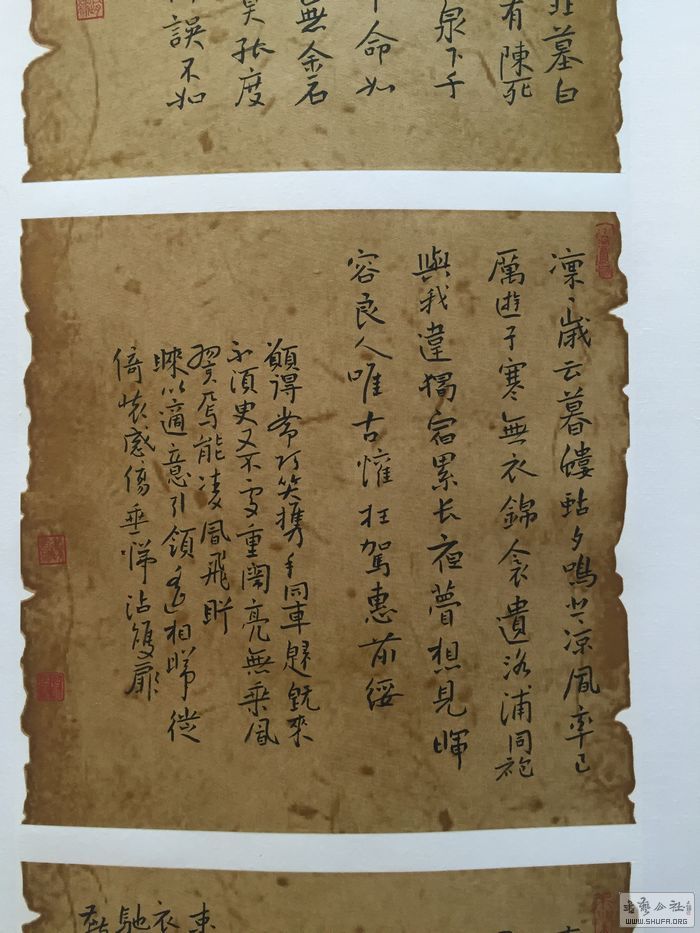 北墓白
有陳死
泉下千
命如
無金石
莫能度
誤不如
凛〻歲云暮螻蛄夕鳴悲凉風率已
厲遊子寒無衣錦衾遺洛浦同袍
與我違獨宿累长夜夢想見暉
容良人唯古懽枉駕惠前綏
願得常巧笑攜手同車歸既來
不須臾又不處重闈亮無晨風
翼焉能凌風飛眄
睞以適意引領遙相睎徙
倚懷感傷垂涕沾雙扉
東
衣
馳
书艺公社
WWW.SHUFA.ORG